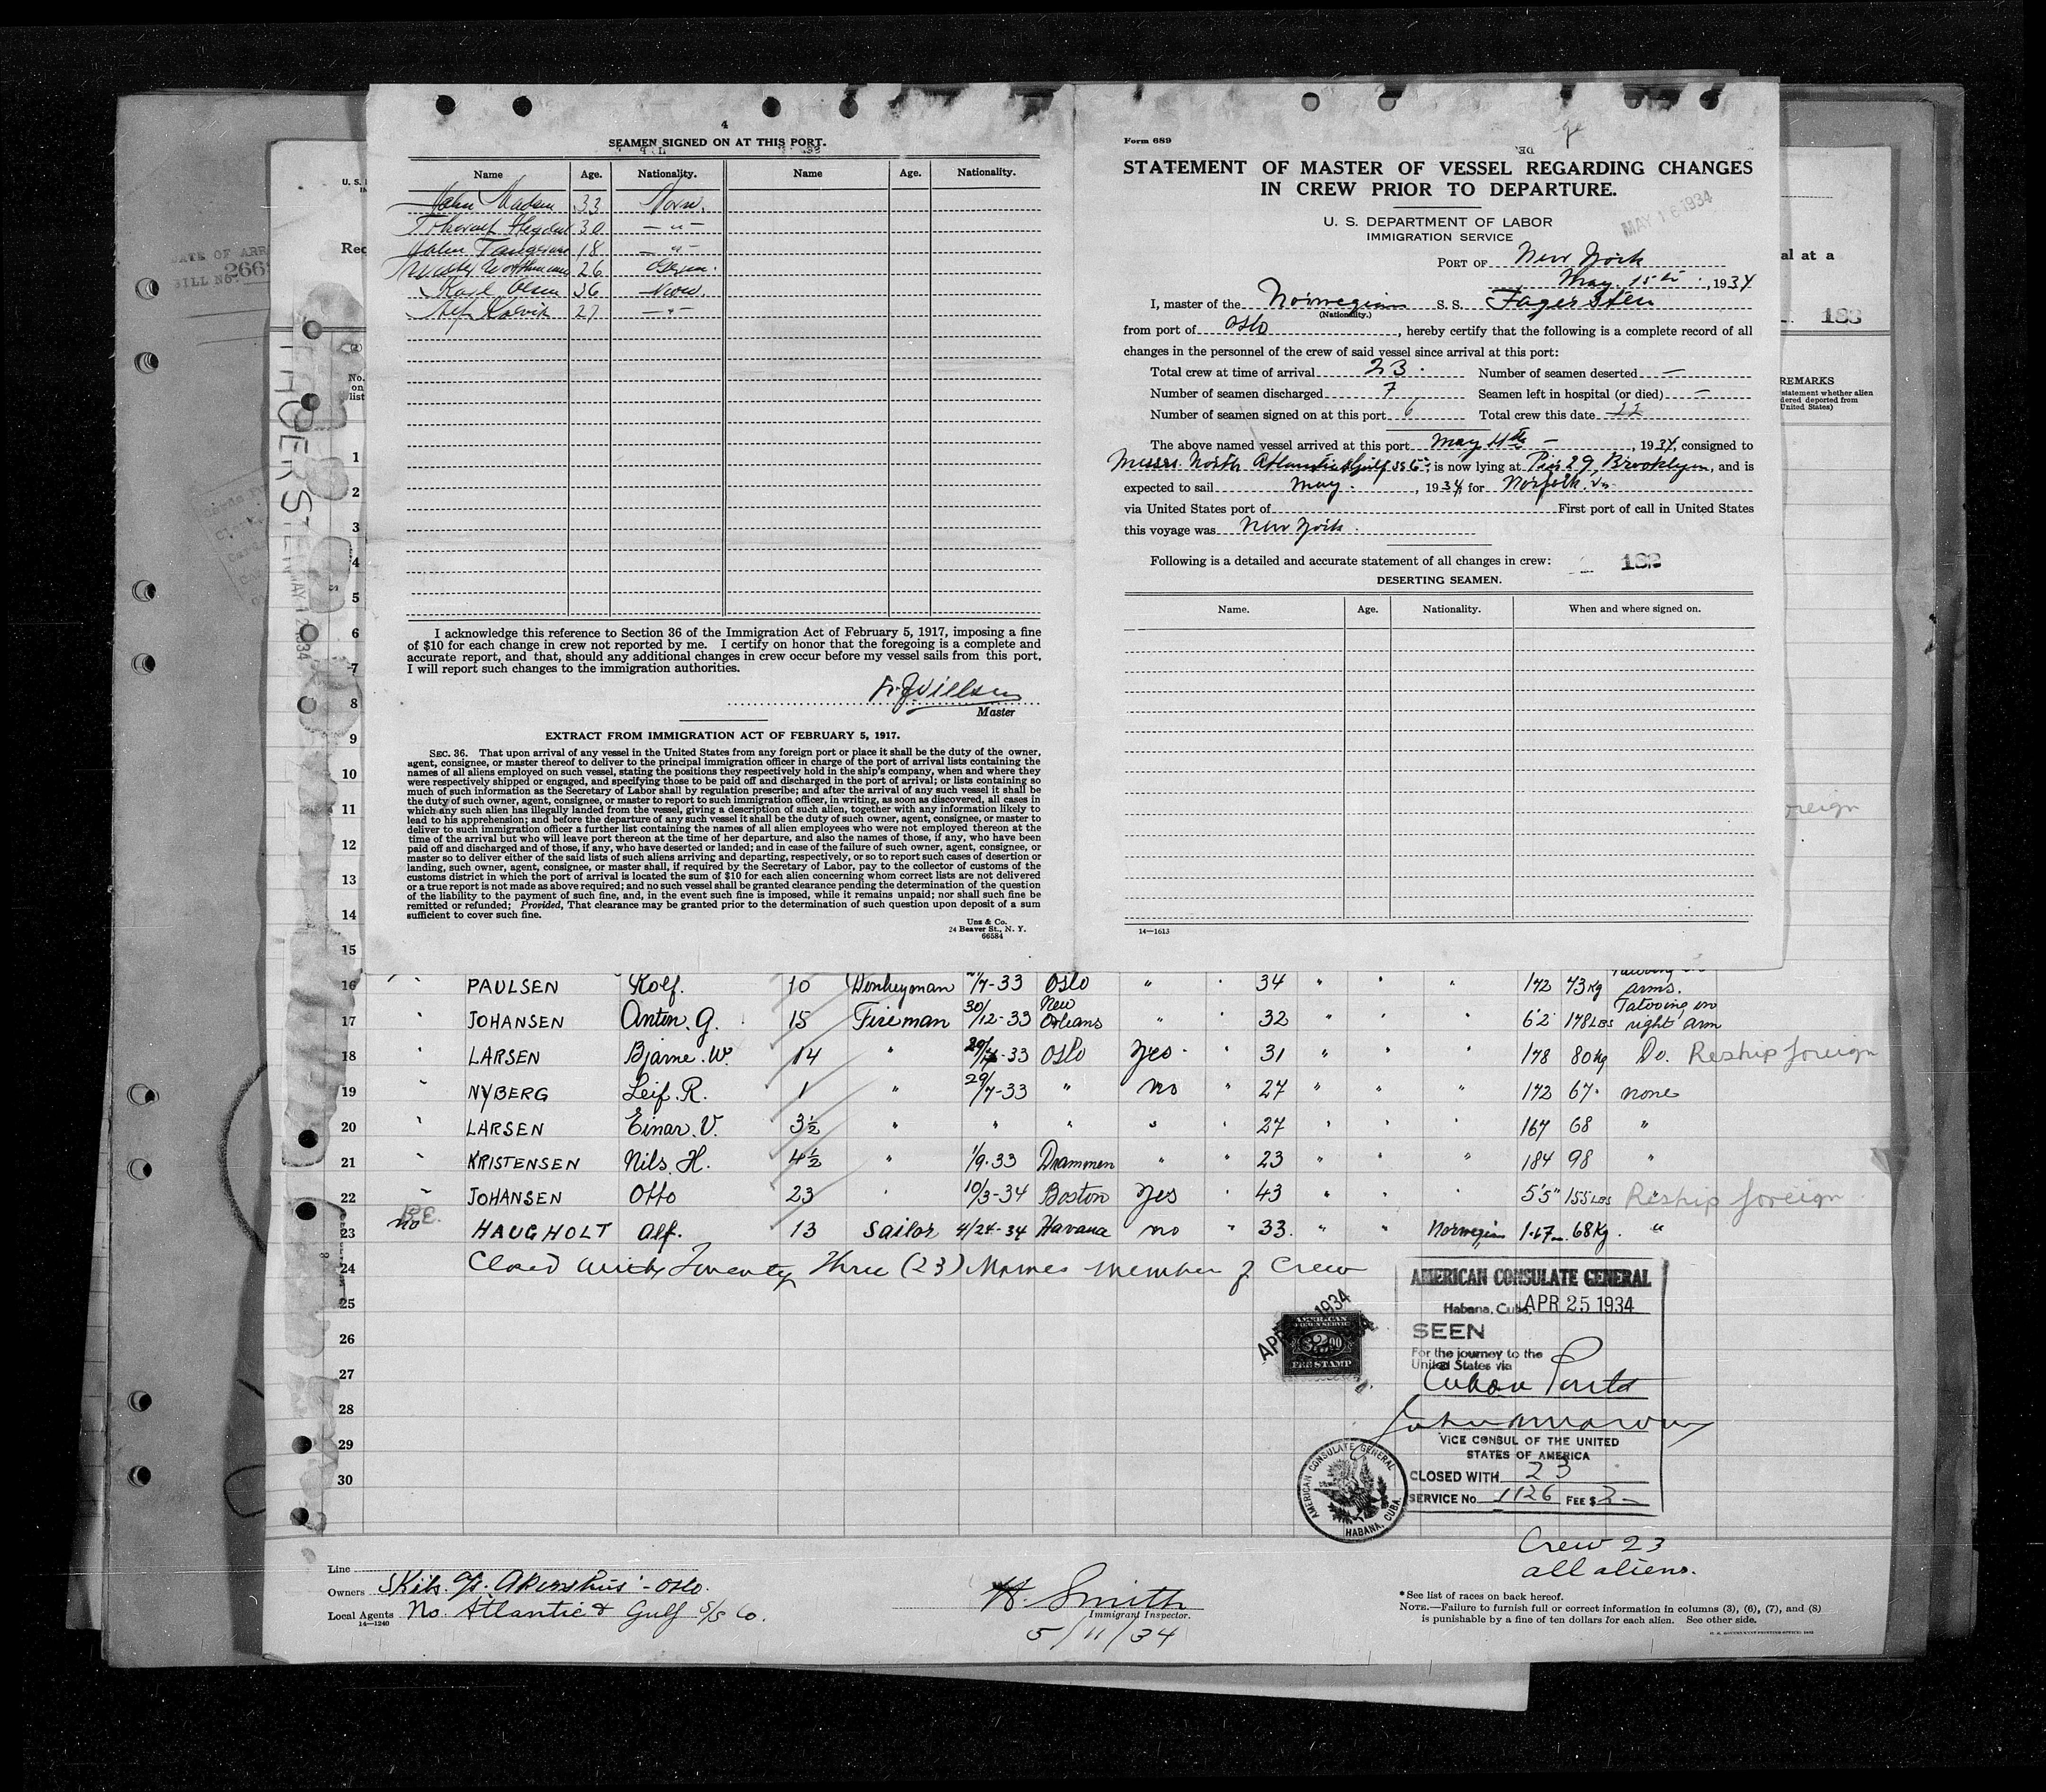 4
SEAMEN SIGNED ON AT THIS PORT.
Name Age. Nationality. Name Age. Nationality.
John Madsen 33 Norw.
30 — " —
John 18 — " —
26 Germ.
Karl Olsen 36 Norw.
Alf 27 — " —
I acknowledge this reference to Section 36 of the Immigration Act of February 5, 1917, imposing a fine
of $10 for each change in crew not reported by me. I certify on honor that the foregoing is a complete and
accurate report, and that, should any additional changes in crew occur before my vessel sails from this port,
I will report such changes to the immigration authorities.
Master
EXTRACT FROM IMMIGRATION ACT OF FEBRUARY 5, 1917.
SEC. 36. That upon arrival of any vessel in the United States from any foreign port or place it shall be the duty of the owner,
agent, consignee, or master thereof to deliver to the principal immigration officer in charge of the port of arrival lists containing the
names of all aliens employed on such vessel, stating the positions they respectively hold in the ship's company, when and where they
were respectively shipped or engaged, and specifying those to be paid off and discharged in the port of arrival; or lists containing so
much of such information as the Secretary of Labor shall by regulation prescribe; and after the arrival of any such vessel it shall be
the duty of such owner, agent, consignee, or master to report to such immigration officer, in writing, as soon as discovered, all cases in
which any such alien has illegally landed from the vessel, giving a description of such alien, together with any information likely to
lead to his apprehension; and before the departure of any such vessel it shall be the duty of such owner, agent, consignee, or master to
deliver to such immigration officer a further list containing the names of all alien employees who were not employed thereon at the
time of the arrival but who will leave port thereon at the time of her departure, and also the names of those, if any, who have been
paid off and discharged and of those, if any, who have deserted or landed; and in case of the failure of such owner, agent, consignee, or
master so to deliver either of the said lists of such aliens arriving and departing, respectively, or so to report such cases of desertion or
landing, such owner, agent, consignee, or master shall, if required by the Secretary of Labor, pay to the collector of customs of the
customs district in which the port of arrival is located the sum of $10 for each alien concerning whom correct lists are not delivered
or a true report is not made as above required; and no such vessel shall be granted clearance pending the determination of the question
of the liability to the payment of such fine, and, in the event such fine is imposed, while it remains unpaid; nor shall such fine be
remitted or refunded; Provided, That clearance may be granted prior to the determination of such question upon deposit of a sum
sufficient to cover such fine.
Unz & Co.
24 Beaver St., N. Y.
66584
Form 689
STATEMENT OF MASTER OF VESSEL REGARDING CHANGES
IN CREW PRIOR TO DEPARTURE.
MAY 16 1934
U. S. DEPARTMENT OF LABOR
IMMIGRATION SERVICE
PORT OF New York
May 15th, 1934
I, master of the Norwegian S. S. Fagersten
(Nationality.)
from port of Oslo, hereby certify that the following is a complete record of all
changes in the personnel of the crew of said vessel since arrival at this port:
Total crew at time of arrival 23 Number of seamen deserted —
Number of seamen discharged 7 Seamen left in hospital (or died) —
Number of seamen signed on at this port 6 Total crew this date 22
The above named vessel arrived at this port May 11th —, 1934, consigned to
Messrs. North Atlantic & Gulf SS Co; is now lying at Pier 29, Brooklyn, and is
expected to sail May, 1934 for Norfolk, Va.
via United States port of First port of call in United States
this voyage was New York.
Following is a detailed and accurate statement of all changes in crew: 182
DESERTING SEAMEN.
Name. Age. Nationality. When and where signed on.
14—1613
DATE OF ARR
BILL No.
U. S.
Rec
No.
on
list
al at a
183
REMARKS
statement whether alien
dered deported from
United States)
THORSTEN
MAY 12 1934
1
2
3
4
5
6
7
8
9
10
11
12
13
14
15
oreign
16 " PAULSEN Rolf. 10 Donkeyman /7-33 Oslo " " 34 " " " 172 73kg arms.
17 " JOHANSEN Anton. G. 15 Fireman 30/12-33 New Orleans " " 32 " " " 6'2 178LBS Tatooing on right arm
18 " LARSEN Bjarne. W. 14 " 29/-33 Oslo yes " 31 " " " 178 80kg Do. Reship foreign
19 " NYBERG Leif. R. 1 " 29/7-33 " no " 27 " " " 172 67 " none
20 " LARSEN Einar. V. 3½ " " " " " 27 " " " 167 68 "
21 KRISTENSEN Nils. H. 4½ " 1/9-33 Drammen " " 23 " " " 184 98 "
22 " JOHANSEN Otto 23 " 10/3-34 Boston yes " 43 " " " 5'5" 155LBS " Reship foreign
23 no HAUGHOLT Alf. 13 Sailor 4/24-34 Havana no " 33. " " Norwegian 1.67m 68Kg. "
24 Closed with Twenty Three (23) Names member of Crew
25
26
27
28
29
30
AMERICAN CONSULATE GENERAL
Habana, Cuba. APR 25 1934
SEEN
For the journey to the
United States via
Cuban Ports
VICE CONSUL OF THE UNITED
STATES OF AMERICA
CLOSED WITH 23
SERVICE No. 1126 FEE $2—
AMERICAN
$2.00
FEE STAMP
AMERICAN CONSULATE GENERAL
HABANA, CUBA.
Crew 23
all aliens.
Line
Owners Skibs. A/S. Akershus - Oslo.
Local Agents No. Atlantic & Gulf S/S Co.
14—1240
H. Smith
Immigrant Inspector.
5/11/34
*See list of races on back hereof.
NOTE.—Failure to furnish full or correct information in columns (3), (6), (7), and (8)
is punishable by a fine of ten dollars for each alien. See other side.